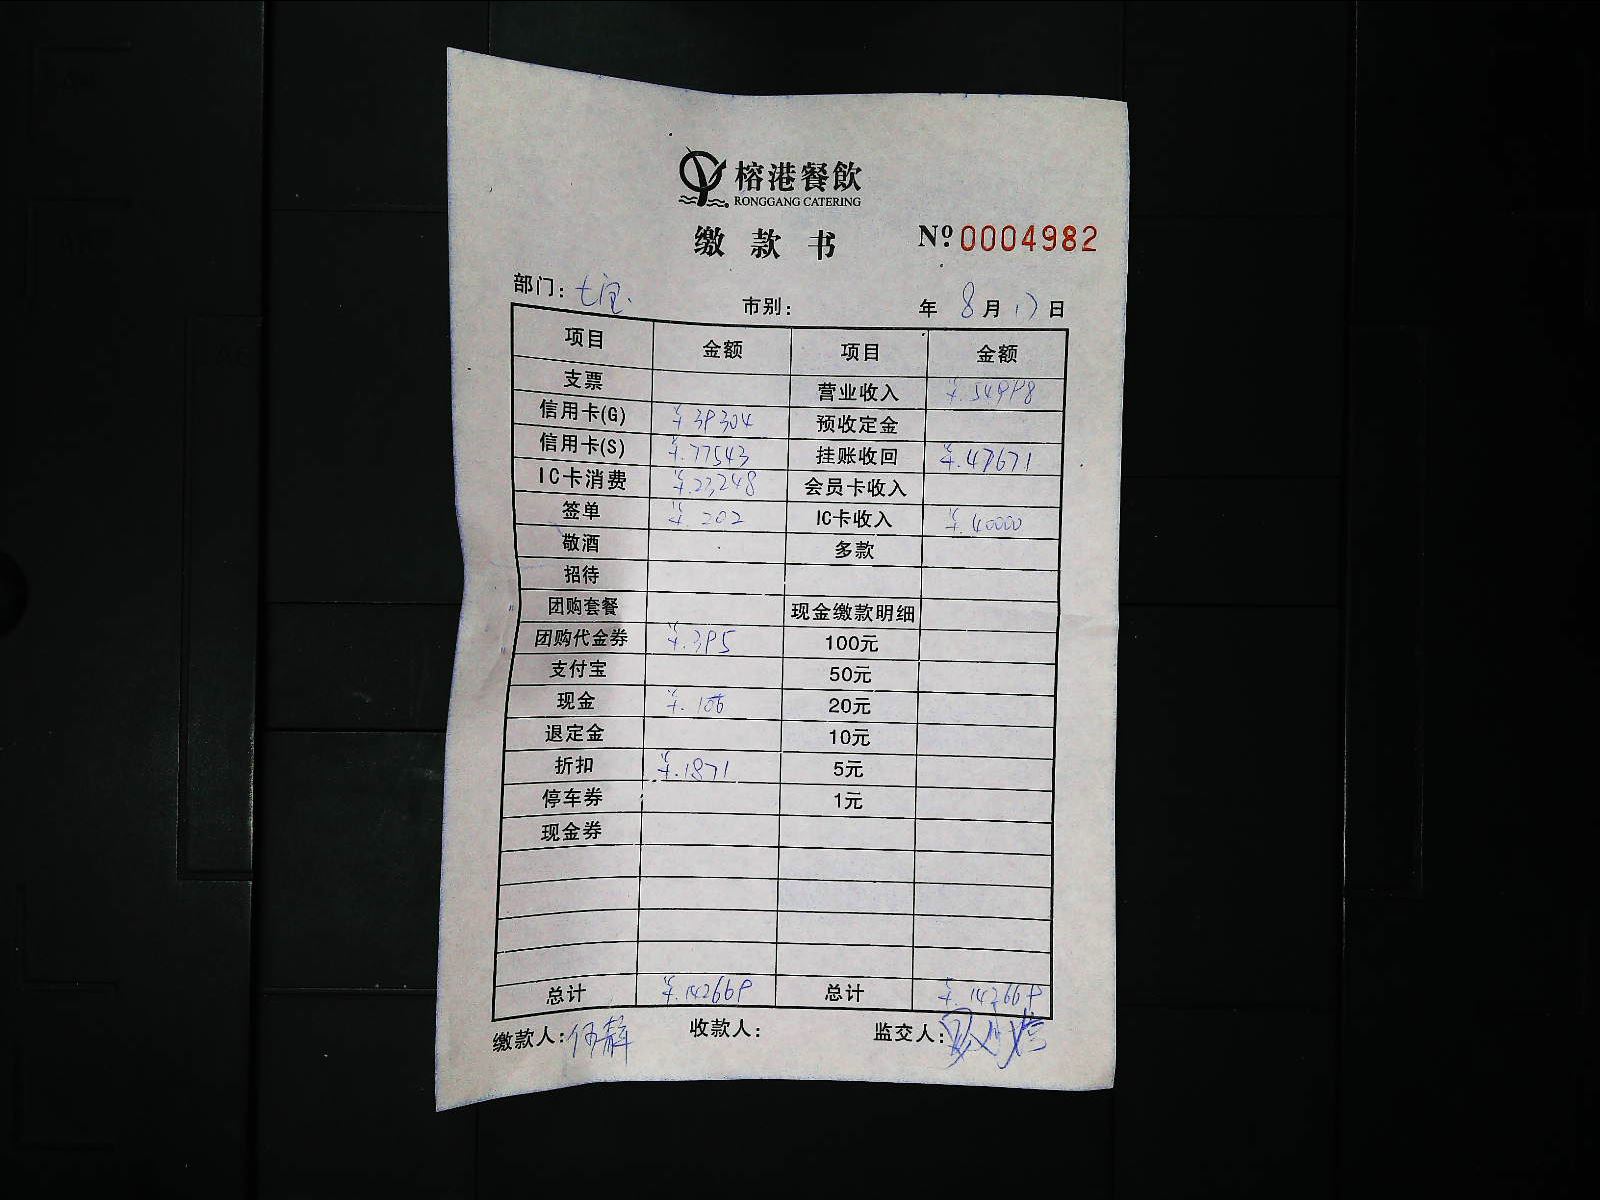 榕港餐飲
RONGGANG CATERING
缴款书 Nº 0004982
部门: 七宝 市别: 年 8月17日
项目 金额 项目 金额
支票 营业收入 ¥.54998
信用卡(G) ¥39304 预收定金
信用卡(S) ¥.77543 挂账收回 ¥.47671
IC卡消费 ¥.23248 会员卡收入
签单 ¥.202 IC卡收入 ¥.40000
敬酒 多款
招待
团购套餐 现金缴款明细
团购代金券 ¥.395 100元
支付宝 50元
现金 ¥.106 20元
退定金 10元
折扣 ¥.1871 5元
停车券 1元
现金券
总计 ¥.142669 总计 ¥.142669
缴款人: 收款人: 监交人: